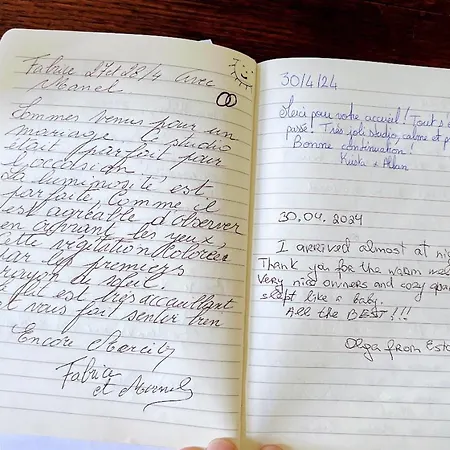 Fabrice 27 et 28/4 avec
Manel
Sommes venus pour un
mariage, le studio
était parfait pour
l'occasion
La luminosité est
parfaite, comme il
est agréable d'observer
en ouvrant les yeux,
cette végétation colorée
par les premiers
rayon de soleil.
est très accueillant
et vous fait sentir
Encore Merci
Fabrice
et Manel
30/4/24
Merci pour votre accueil! Tout s'
passé! Très joli studio, calme et
Bonne continuation!
30.04.2024
I arrived almost at
Thank you for the warm
very nice owners and cozy
slept like a baby.
All the BEST!!!
Olga from